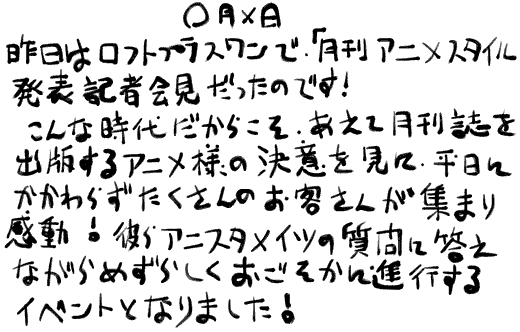 〇月×日
昨日はロフトプラスワンで、「月刊アニメスタイル
発表記者会見だったのです!
こんな時代だからこそ、あえて月刊誌を
出版するアニメ様の決意を見に、平日に
かかわらずたくさんのお客さんが集まり
感動!彼らアニスタメイツの質問に答え
ながらめずらしくおごそかに進行する
イベントとなりました!